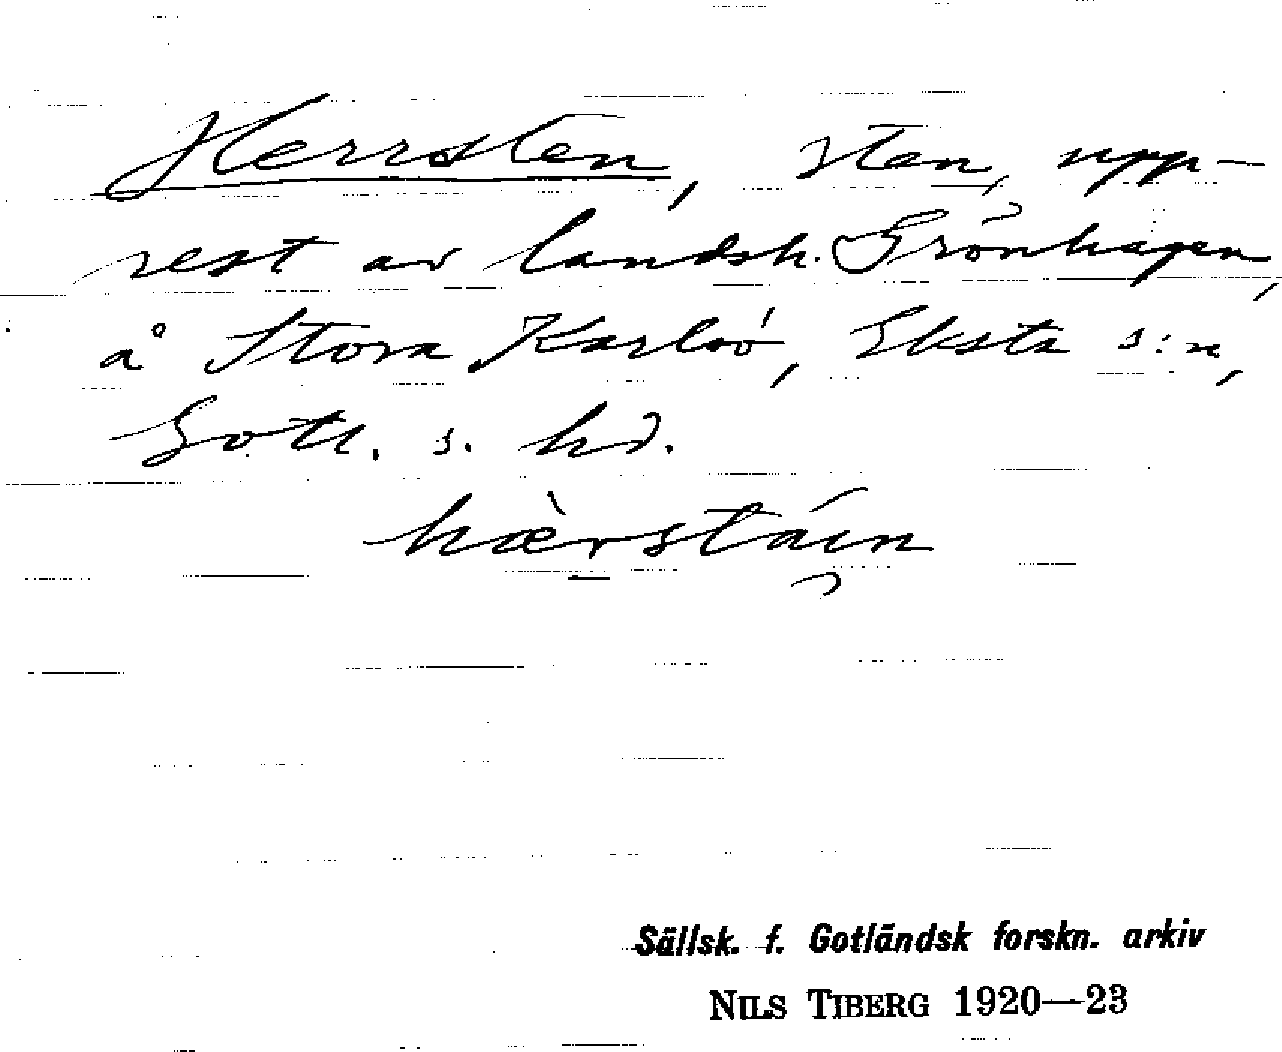 Herrsten, sten, upp-
rest av landsh. Grönhagen,
å Stora Karlsö, Eksta s:n,
Gotl. s. hd.
hærstáin
Sällsk. f. Gotländsk forskn. arkiv
NILS TIBERG 1920—23